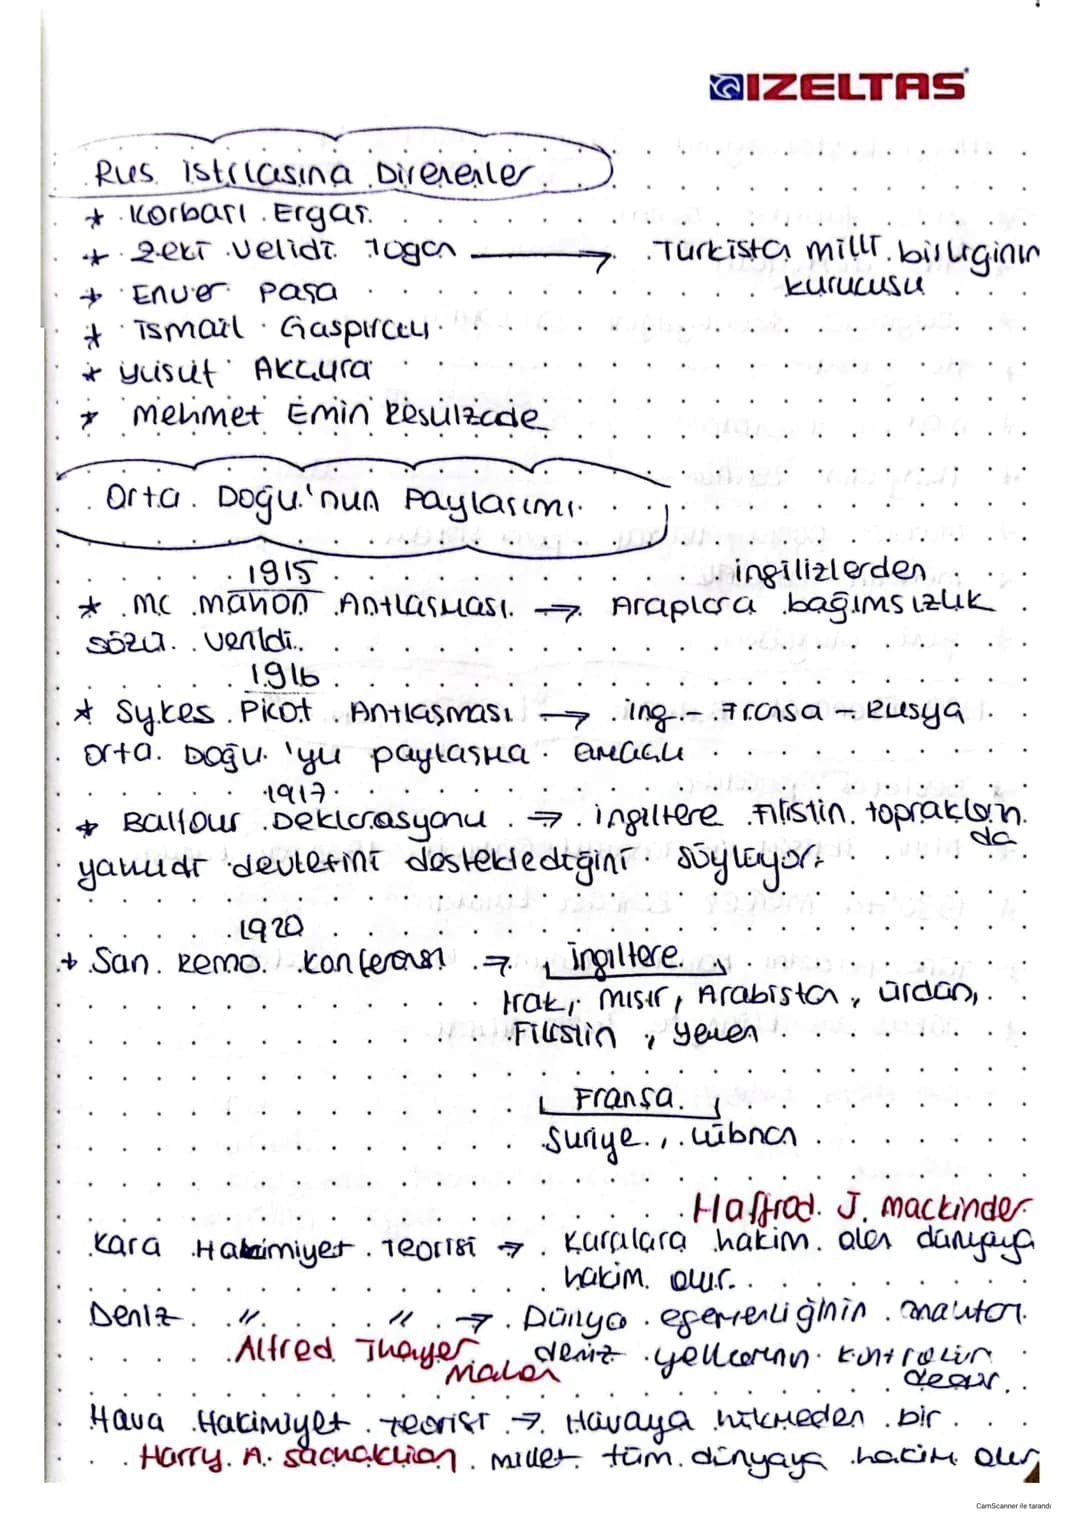 IZELTAS
Rus istilasına Direnenler
* Korbaşı Ergaş
* Zeki Velidi Togan → Türkistan milli birliğinin
kurucusu
* Enver Paşa
* ismail Gaspıralı
* yusuf Akçura
* mehmet Emin Resulzade
Orta Doğu'nun Paylaşımı
1915 ingilizlerden
* Mc mahon Antlaşması → Araplara bağımsızlık
sözü verildi.
1916
* Sykes Picot Antlaşması → ing - Fransa - Rusya
Orta Doğu'yu paylaşma amaçlı
1917
* Balfour Deklarasyonu ⇒ ingiltere Filistin toprakların
da
yahudi devletini desteklediğini söylüyor.
1920
* San Remo Konferansı ⇒ ingiltere
Irak, mısır, Arabistan, ürdün,
Filistin, yemen
Fransa
Suriye, Lübnan
Halfrod J. mackinder
Kara Hakimiyet Teorisi → Karalara hakim olan dünyaya
hakim olur.
Deniz " " → Dünya egemenliğinin anahtarı
Alfred Thayer deniz yollarının kontrolün
Mahan dedir.
Hava Hakimiyet Teorisi → Havaya hükmeden bir
Harry A. millet tüm dünyaya hakim olur
CamScanner ile tarandı